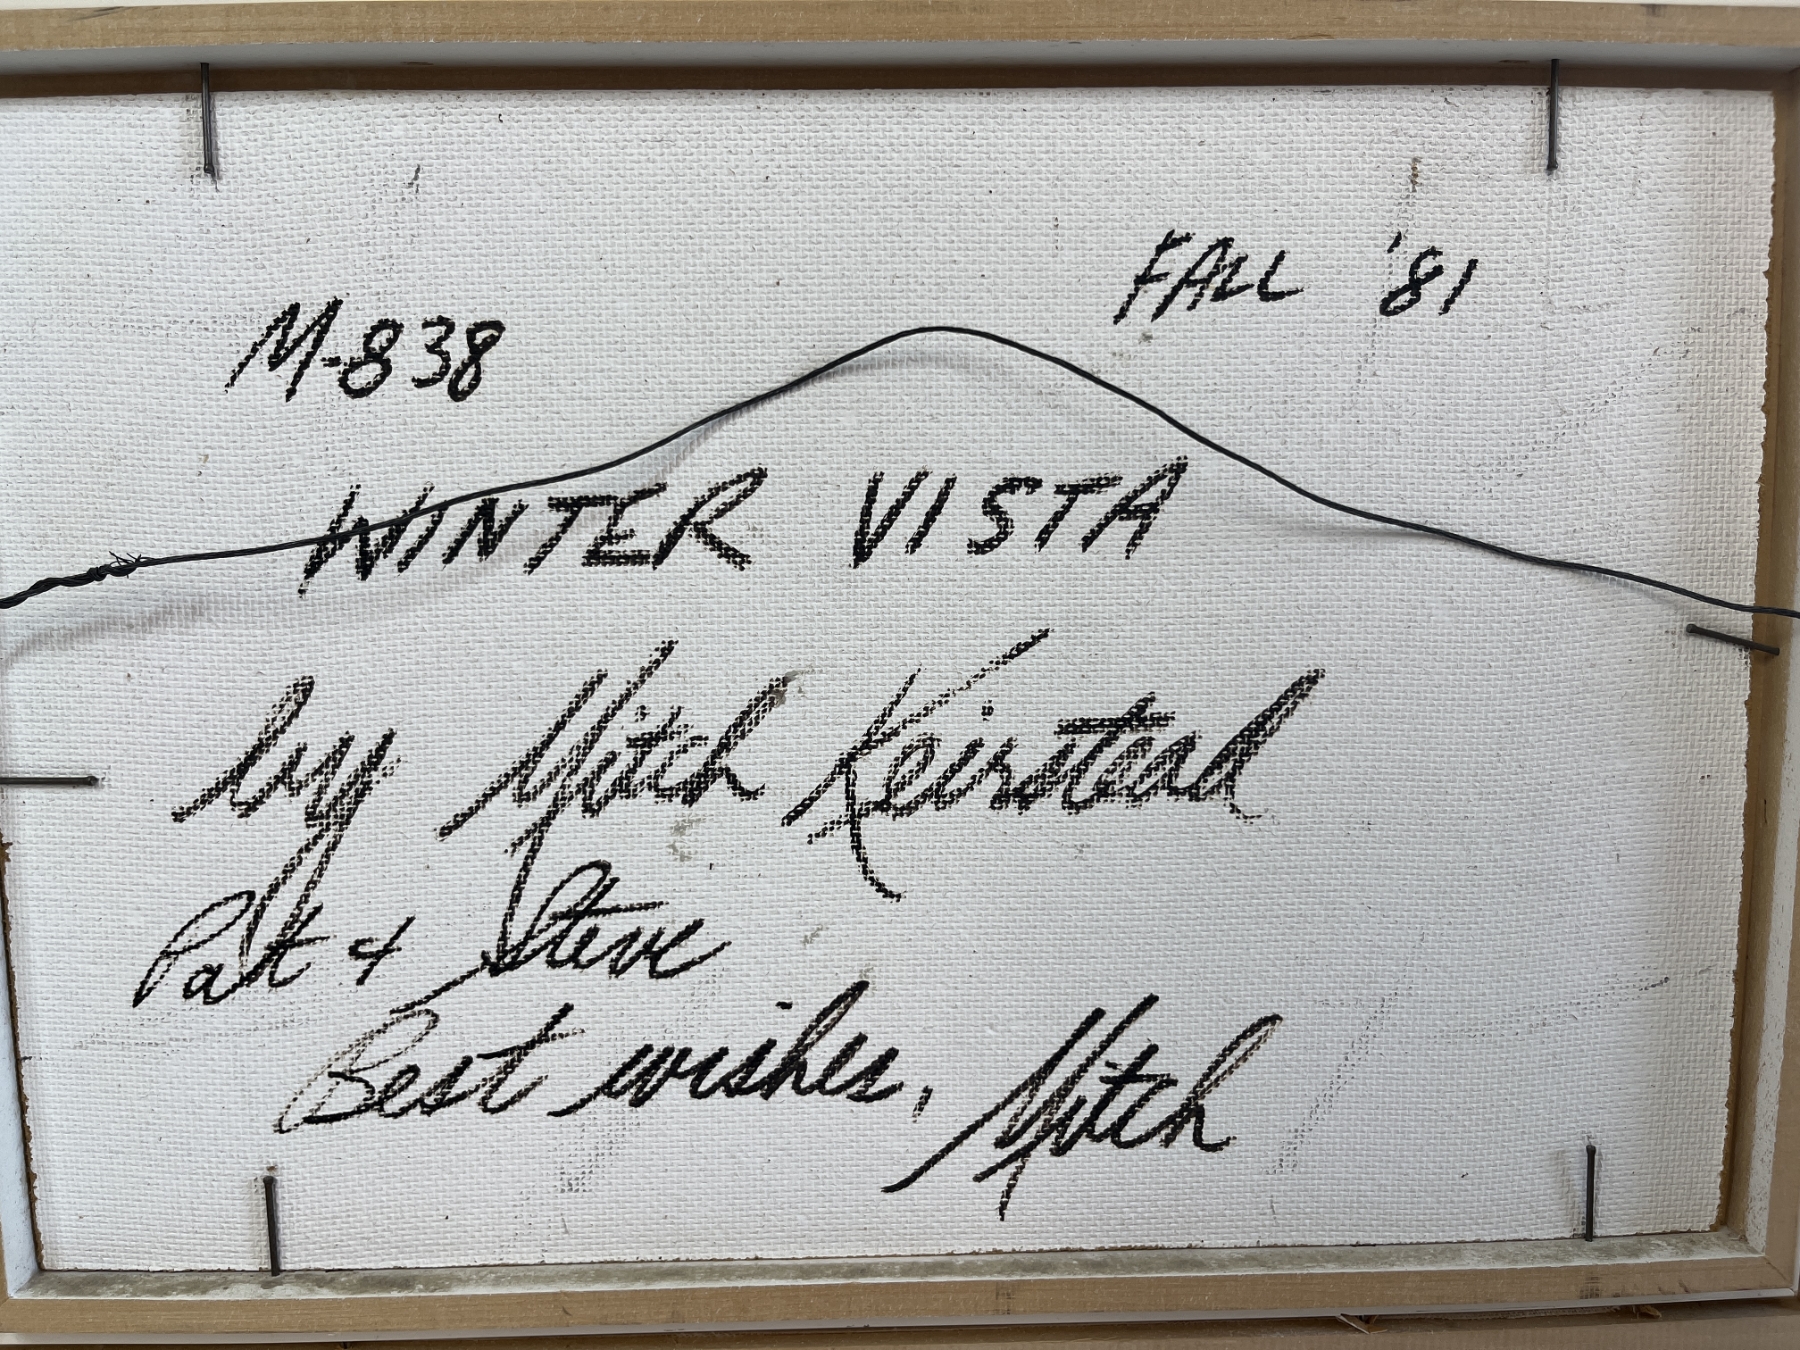 FALL '81
M-838
WINTER VISTA
by Mitch Keirstead
Pat + Steve
Best wishes, Mitch